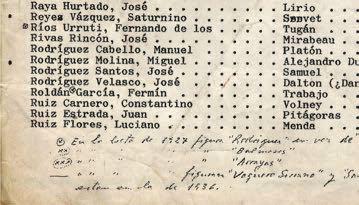 Raya Hurtado, José . . . . . . . . . Lirio
Reyes Vázquez, Saturnino . . . . . . Servet
Ríos Urruti, Fernando de los . . . . Tugán
Rivas Rincón, José . . . . . . . . . Mirabeau
Rodríguez Cabello, Manuel . . . . . . Platón
Rodríguez Molina, Miguel . . . . . . Alejandro Du
Rodríguez Santos, José . . . . . . . Samuel
Rodríguez Velasco, José . . . . . . . Dalton (¿Da
Roldán García, Fermín . . . . . . . . Trabajo
Ruiz Carnero, Constantino . . . . . . Volney
Ruiz Estrada, Juan . . . . . . . . . Pitágoras
Ruiz Flores, Luciano . . . . . . . . Menda
En la lista de 1927 figura "Rodríguez" en vez de
" " " " "Balmaseo"
" " " " "Arroyas"
" " " figuran "Vaquero Serrano" y "
están en la de 1936.